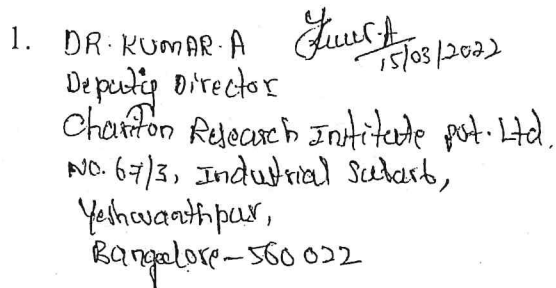 1. DR. KUMAR. A
15/03/2022
Deputy Director
Research Institute pvt. Ltd.
NO. 67/3, Industrial Suburb,
Yeshwanthpur,
Bangalore - 560 022